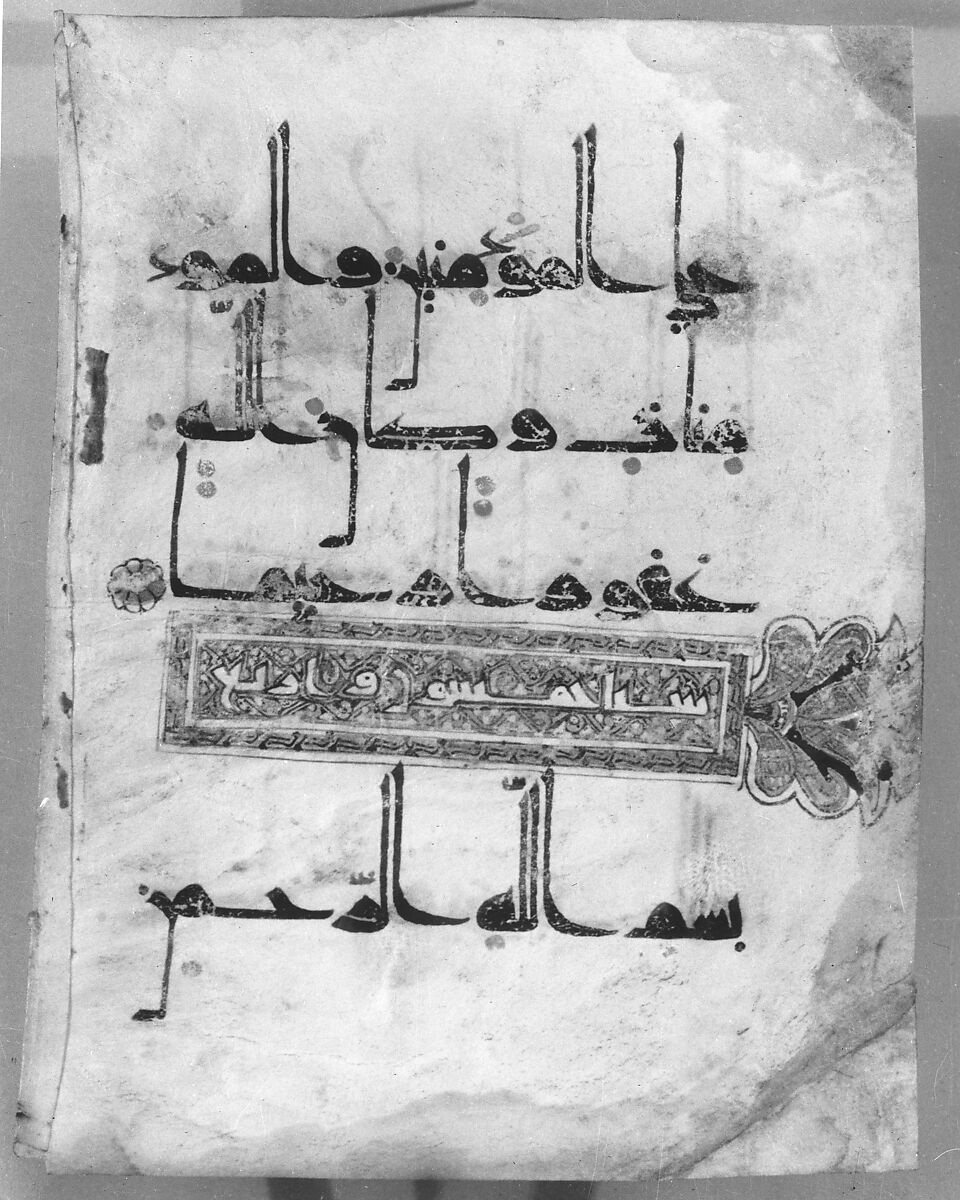 على المؤمنين والمؤ
منات وكان الله
غفورا رحيما
سبا خمسون واربع
بسم الله الرحمن